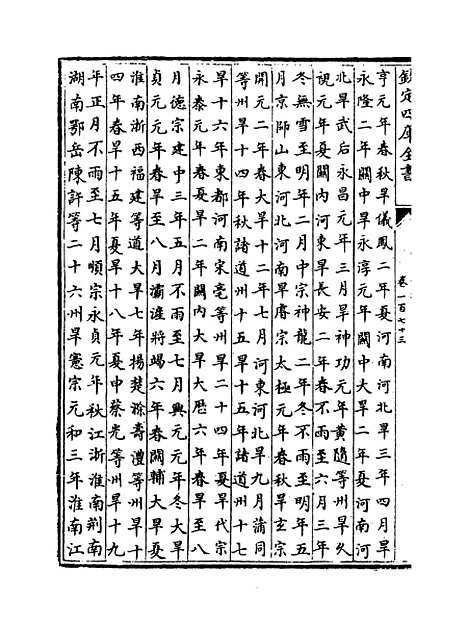 欽定四庫全書
卷一百七十三
亨元年春秋旱儀鳳二年夏河南河北旱三年四月旱
永隆二年關中旱永淳元年關中大旱二年夏河南河
北旱武后永昌元年三月旱神功元年黄隨等州旱久
視元年夏關内河東旱長安二年春不雨至六月三年
冬無雪至明年二月中宗神龍二年冬不雨至明年五
月京師山東河北河南旱睿宗太極元年春秋旱玄宗
開元二年春大旱十二年七月河東河北旱九月蒲同
等州旱十四年秋諸道州十五旱十五年諸道州十七
旱十六年東都河南宋亳等州旱二十四年夏旱代宗
永泰元年春夏旱二年關内大旱大厯六年春旱至八
月德宗建中三年五月不雨至七月興元元年冬大旱
貞元元年春旱至八月灞滻將竭六年春關輔大旱夏
淮南浙西福建等道大旱七年揚楚滁壽澧等州旱十
四年春旱十五年夏旱十八年夏申蔡光等州旱十九
年正月不雨至七月順宗永貞元年秋江浙淮南荆南
湖南鄂岳陳許等二十六州旱憲宗元和三年淮南江